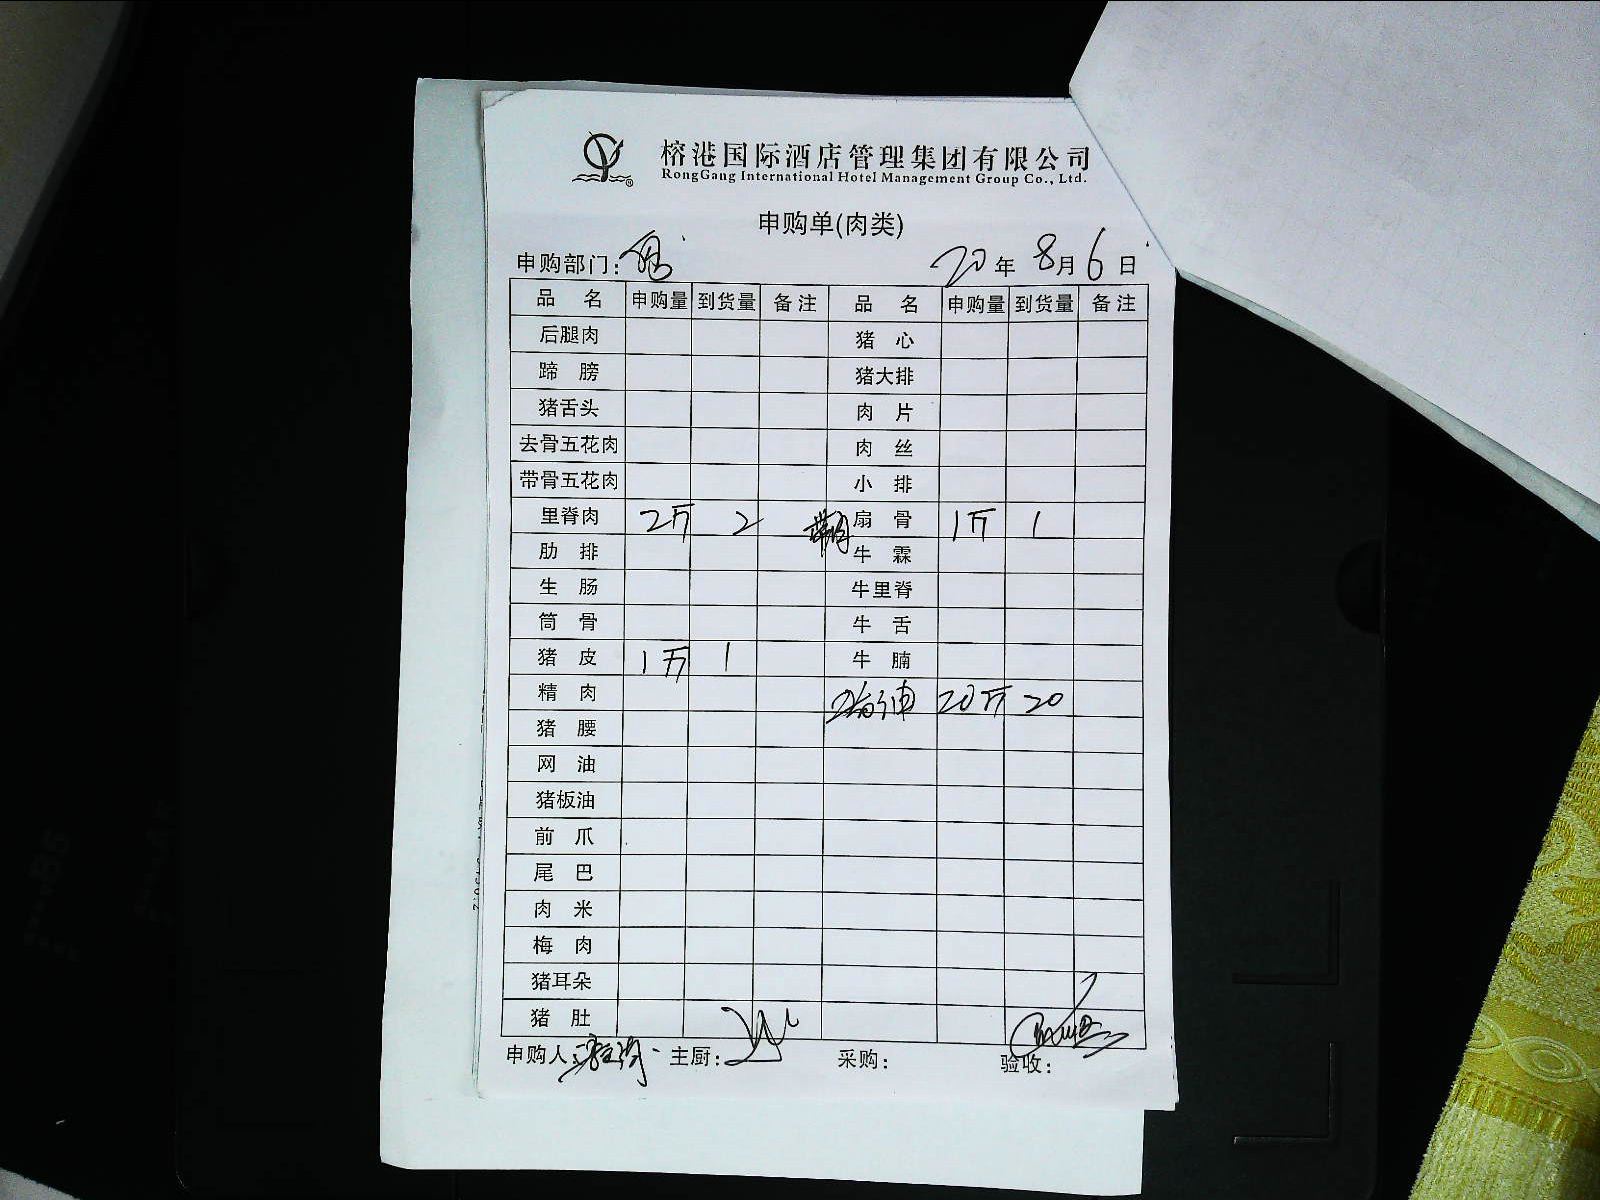 榕港国际酒店管理集团有限公司
RongGang International Hotel Management Group Co., Ltd.
申购单(肉类)
申购部门: 20年8月6日
品 名 申购量 到货量 备注 品 名 申购量 到货量 备注
后腿肉 猪 心
蹄 膀 猪大排
猪舌头 肉 片
去骨五花肉 肉 丝
带骨五花肉 小 排
里脊肉 2斤 2 扇 骨 1斤 1
肋 排 牛 霖
生 肠 牛里脊
筒 骨 牛 舌
猪 皮 1斤 1 牛 腩
精 肉 20斤 20
猪 腰
网 油
猪板油
前 爪
尾 巴
肉 米
梅 肉
猪耳朵
猪 肚
申购人: 主厨: 采购: 验收: